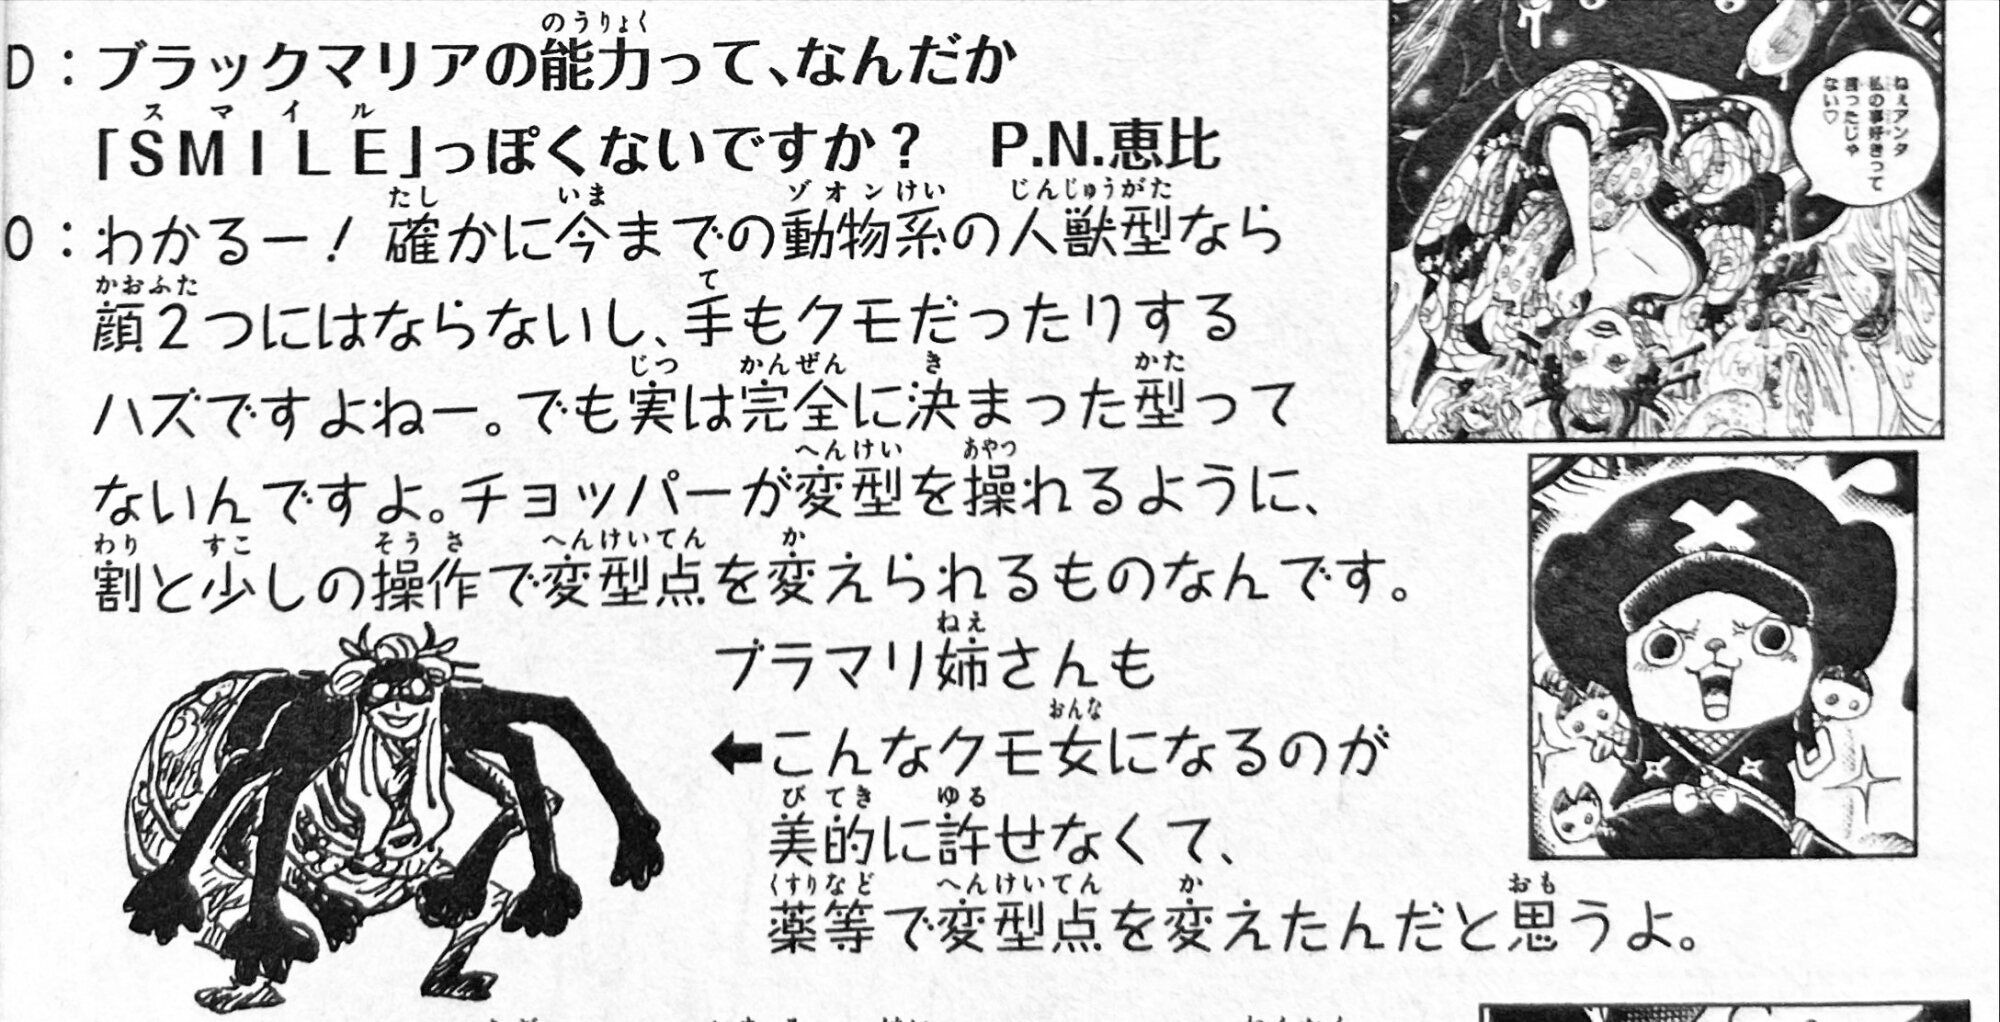 D：ブラックマリアの能力って、なんだか
「SMILE」っぽくないですか？　P.N.恵比
O：わかるー！確かに今までの動物系の人獣型なら
顔２つにはならないし、手もクモだったりする
ハズですよねー。でも実は完全に決まった型って
ないんですよ。チョッパーが変型を操れるように、
割と少しの操作で変型点を変えられるものなんです。
ブラマリ姉さんも
←こんなクモ女になるのが
美的に許せなくて、
薬等で変型点を変えたんだと思うよ。
ねェアンタ
私の事好きって
言ったじゃ
ない♡